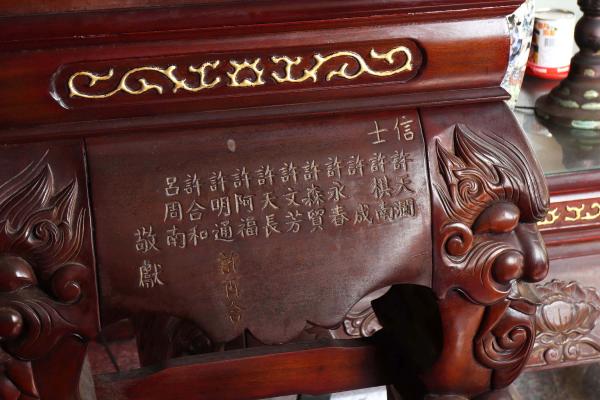 信士
許天瀾
許棋南
許成
許永春
許森貿
許文芳
許天長
許阿福
許明通
許合和
呂周南
敬獻